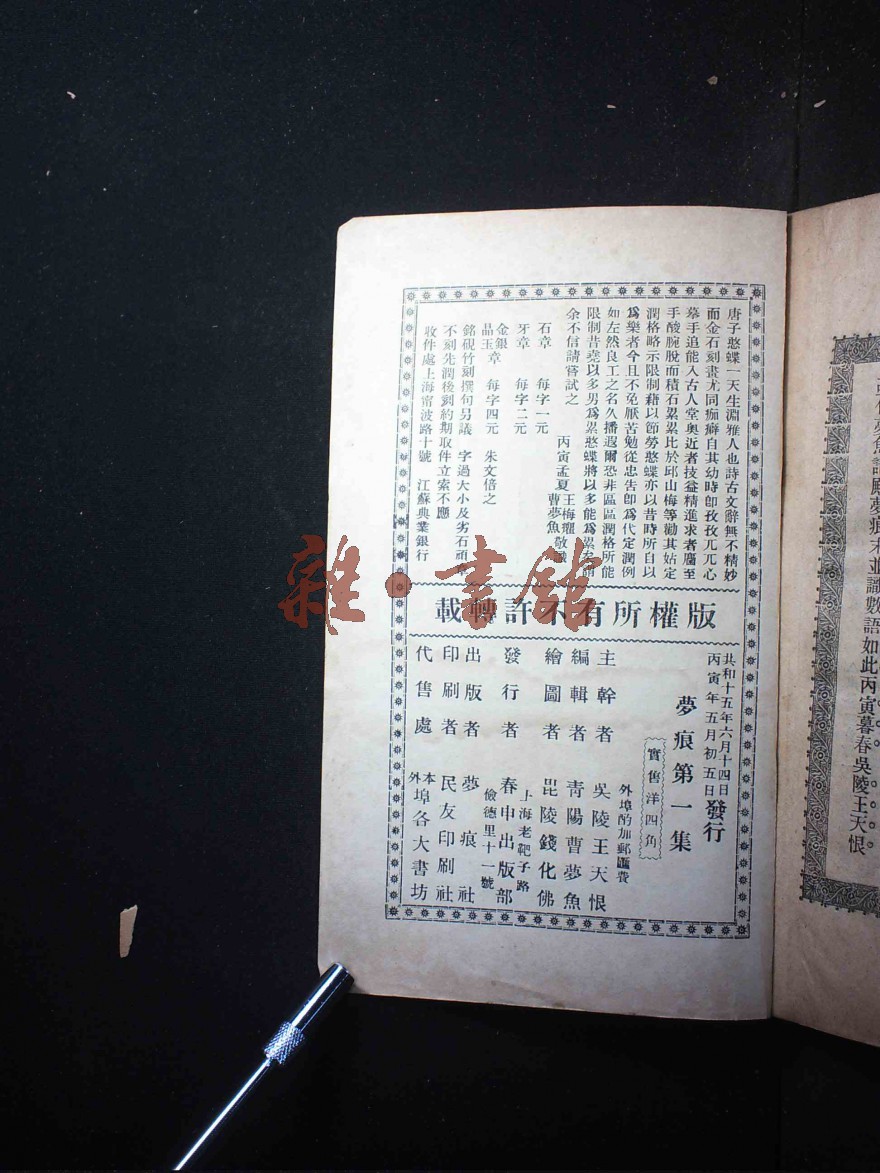 唐子憨蝶一天生淵雅人也詩古文辭無不精妙
而金石刻畫尤同痂癖自其幼時卽孜孜兀兀心
摹手追能入古人堂奧近者技益精進求者麕至
手酸腕脫而積石累累比於邱山梅等勸其姑定
潤格略示限制藉以節勞憨蝶亦以昔時所自以
爲樂者今且不免厭苦勉從忠告卽爲代定潤例
如左然良工之名久播遐爾恐非區區潤格所能
限制昔堯以多男爲累憨蝶將以多能爲累矣謂
余不信請嘗試之
丙寅孟夏王梅癯
曹夢魚敬識
石章 每字一元
牙章 每字二元
金銀
晶玉章 每字四元 朱文倍之
銘硯竹刻撰句另議 字過大小及劣石頑
不刻先潤後劉約期取件立索不應
收件處上海甯波路十號 江蘇典業銀行
版權所有不許轉載
共和十五年六月十四日
丙寅年五月初五日發行
夢痕第一集
實售洋四角
外埠酌加郵匯費
主幹者 吳陵王天恨
編輯者 靑陽曹夢魚
繪圖者 毘陵錢化佛
上海老靶子路
發行者 春申出版部
儉德里十一號
出版者 夢痕社
印刷者 民友印刷社
代售處 本外埠各大書坊
夢魚
夢痕末並識數語如此丙寅暮春吳陵王天恨
雜·書館